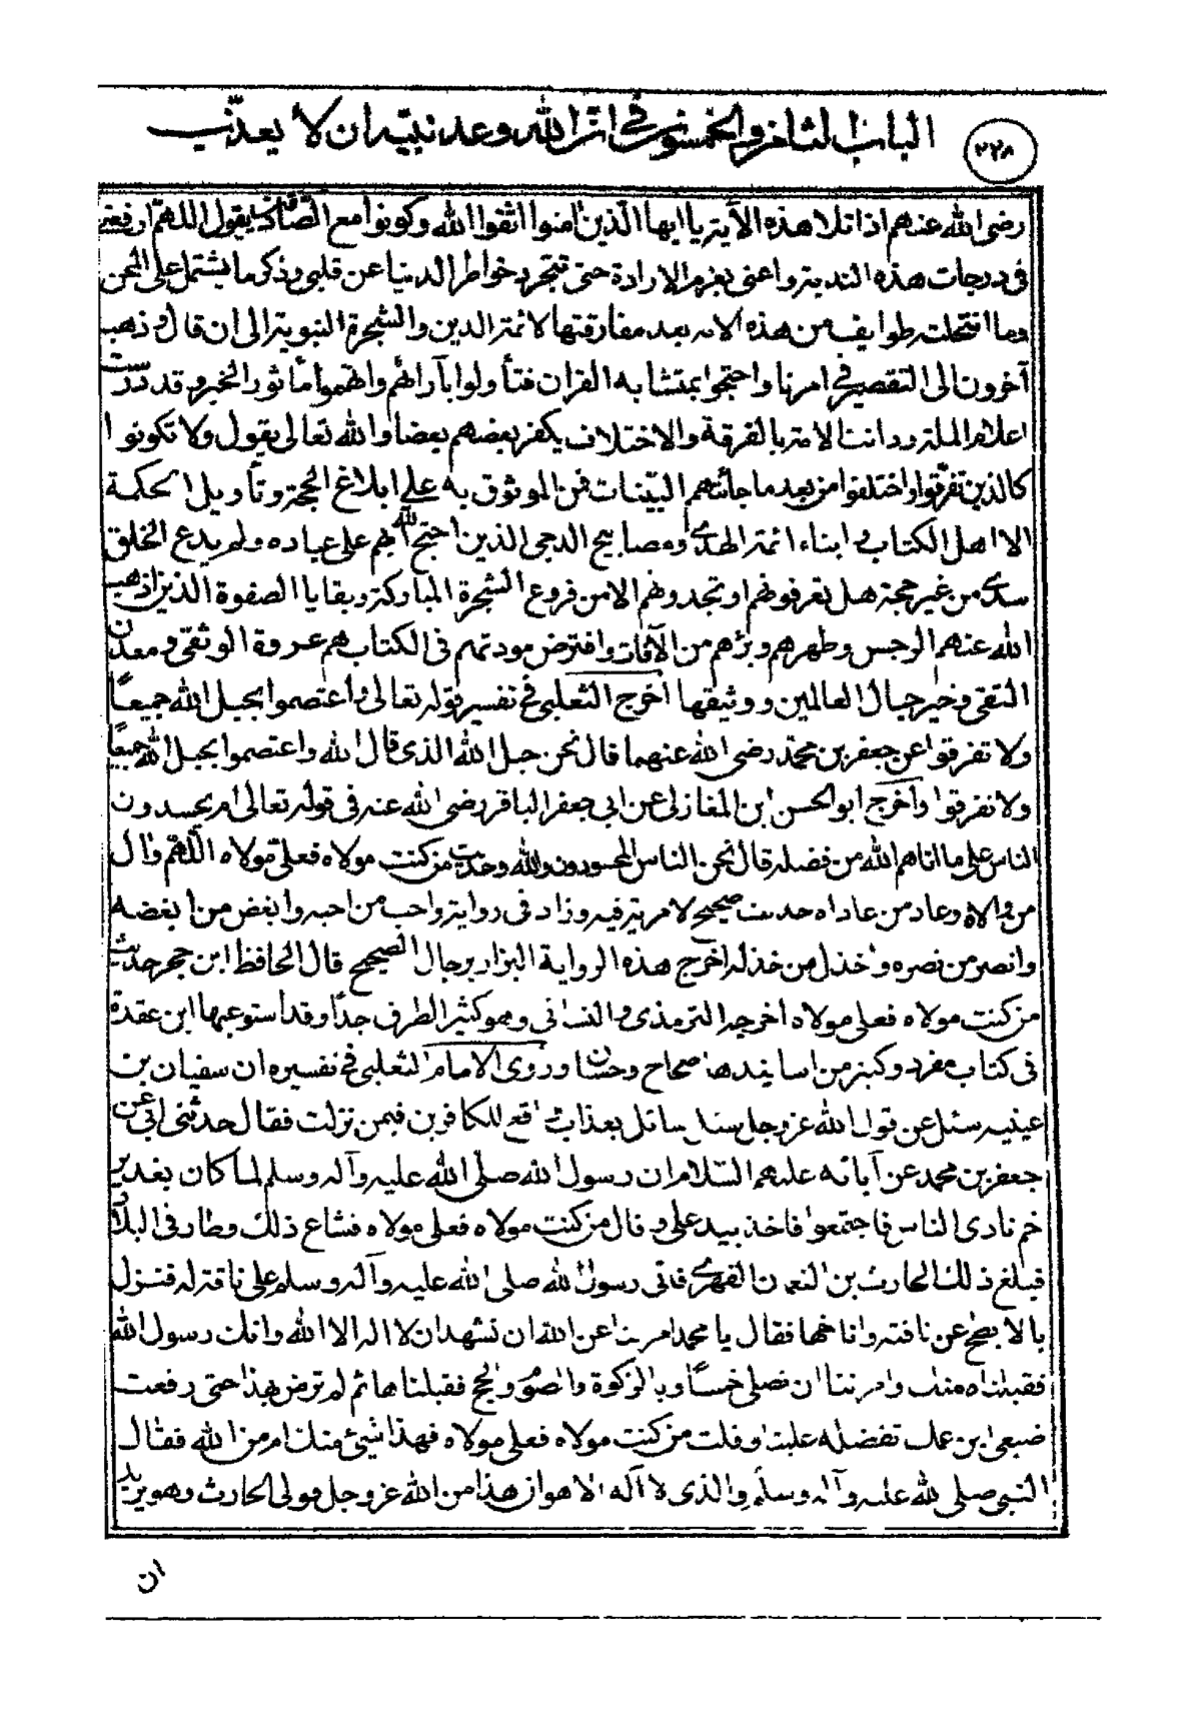 ٢٢٨ الباب الثامن والخمسون في ان الله وعد نبيه ان لا يعذب
رضى الله عنهم اذا تلا هذه الآية يا ايها الذين امنوا اتقوا الله وكونوا مع الصادقين يقول اللهم ارفعنى
فى درجات هذه الندبة واعنى بعزم الارادة حتى تتجرد خواطر الدنيا عن قلبى وذكر ما يشتمل على المحن
وما انتحلت طوايف من هذه الامة بعد مفارقتها لائمة الدين والشجرة النبوية الى ان قال وذهب
آخرون الى التقصير فى امرنا واحتجوا بمتشابه القران فتأولوا بآرائهم واتهموا مأثور الخبر وقد درست
اعلام الملة ودانت الامة بالفرقة والاختلاف يكفر بعضهم بعضا والله تعالى يقول ولا تكونوا
كالذين تفرقوا واختلفوا من بعد ما جائتهم البينات فمن الموثوق به على ابلاغ الحجة وتأويل الحكمة
الا اهل الكتاب وابناء ائمة الهدى ومصابيح الدجى الذين احتج الله بهم على عباده ولم يدع الخلق
سدى من غير حجة هل تعرفونهم او تجدونهم الا من فروع الشجرة المباركة وبقايا الصفوة الذين اذهب
الله عنهم الرجس وطهرهم وبرّهم من الآفات وافترض مودتهم فى الكتاب هم عروة الوثقى ومعدن
التقى وخير حبال العالمين ووثيقها اخرج الثعلبى فى تفسير قوله تعالى واعتصموا بحبل الله جميعًا
ولا تفرقوا عن جعفر بن محمد رضى الله عنهما قال نحن حبل الله الذى قال الله واعتصموا بحبل الله جميعًا
ولا تفرقوا وأخرج ابو الحسن ابن المغازلى عن ابى جعفر الباقر رضى الله عنه فى قوله تعالى ام يحسدون
الناس على ما اتاهم الله من فضله قال نحن الناس المحسودون والله وحديث من كنت مولاه فعلى مولاه اللهم وال
من والاه وعاد من عاداه حديث صحيح لا مرية فيه وزاد فى رواية واحب من احبه وابغض من ابغضه
وانصر من نصره واخذل من خذله اخرج هذه الرواية البزار برجال الصحيح قال الحافظ ابن حجر حديث
من كنت مولاه فعلى مولاه اخرجه الترمذى والنسائى وهو كثير الطرق جدًا وقد استوعبها ابن عقدة
فى كتاب مفرد وكثير من اسانيدها صحاح وحسان وروى الامام الثعلبى فى تفسيره ان سفيان بن
عيينه سئل عن قول الله عز وجل سئل سائل بعذاب واقع للكافرين فيمن نزلت فقال حدثنى ابى عن
جعفر بن محمد عن آبائه عليهم السلام ان رسول الله صلى الله عليه وآله وسلم لما كان بغدير
خم نادى الناس فاجتمعوا فاخذ بيد على وقال من كنت مولاه فعلى مولاه فشاع ذلك وطار فى البلاد
فبلغ ذلك الحارث بن النعمان الفهرى فاتى رسول الله صلى الله عليه وآله وسلم على ناقة له فنزل
بالابطح عن ناقته واناخها فقال يا محمد امرتنا عن الله ان نشهد ان لا اله الا الله وانك رسول الله
فقبلناه منك وامرتنا ان نصلى خمسًا وبالزكوة والصوم والحج فقبلناها ثم لم ترض بهذا حتى رفعت
ضبعى ابن عمك تفضله علينا وقلت من كنت مولاه فعلى مولاه فهذا شيئ منك ام من الله فقال
النبى صلى الله عليه وآله وسلم والذى لا آله الا هو ان هذا من الله عز وجل فولى الحارث وهو يريد
ان